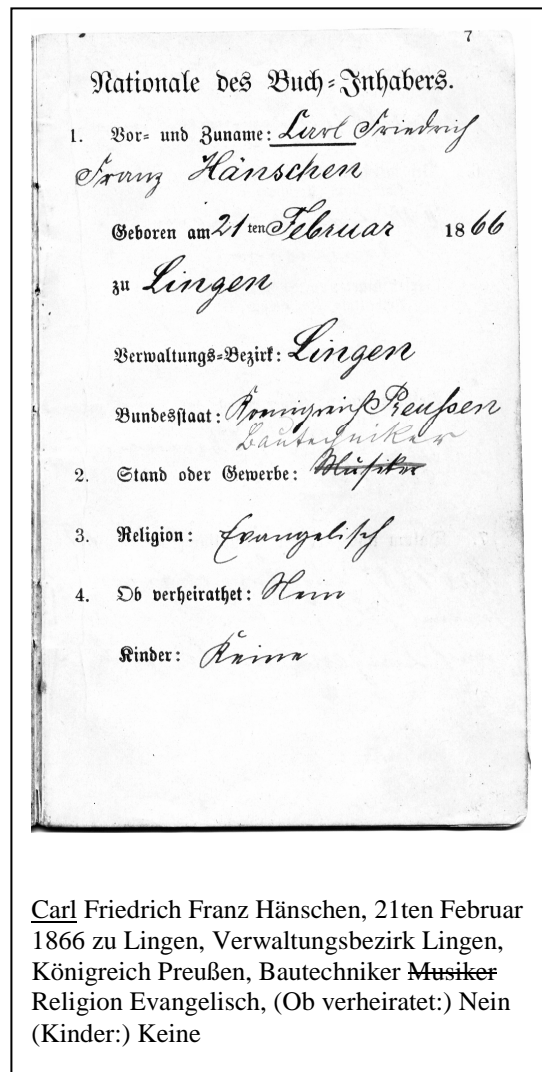 7
Nationale des Buch-Inhabers.
1. Vor- und Zuname: Carl Friedrich
Franz Hänschen
Geboren am 21 ten Februar 1866
zu Lingen
Verwaltungs-Bezirk: Lingen
Bundesstaat: Koenigreich Preußen
Bautechniker
2. Stand oder Gewerbe: Musiker
3. Religion: Evangelisch
4. Ob verheirathet: Nein
Kinder: Keine
Carl Friedrich Franz Hänschen, 21ten Februar
1866 zu Lingen, Verwaltungsbezirk Lingen,
Königreich Preußen, Bautechniker Musiker
Religion Evangelisch, (Ob verheiratet:) Nein
(Kinder:) Keine